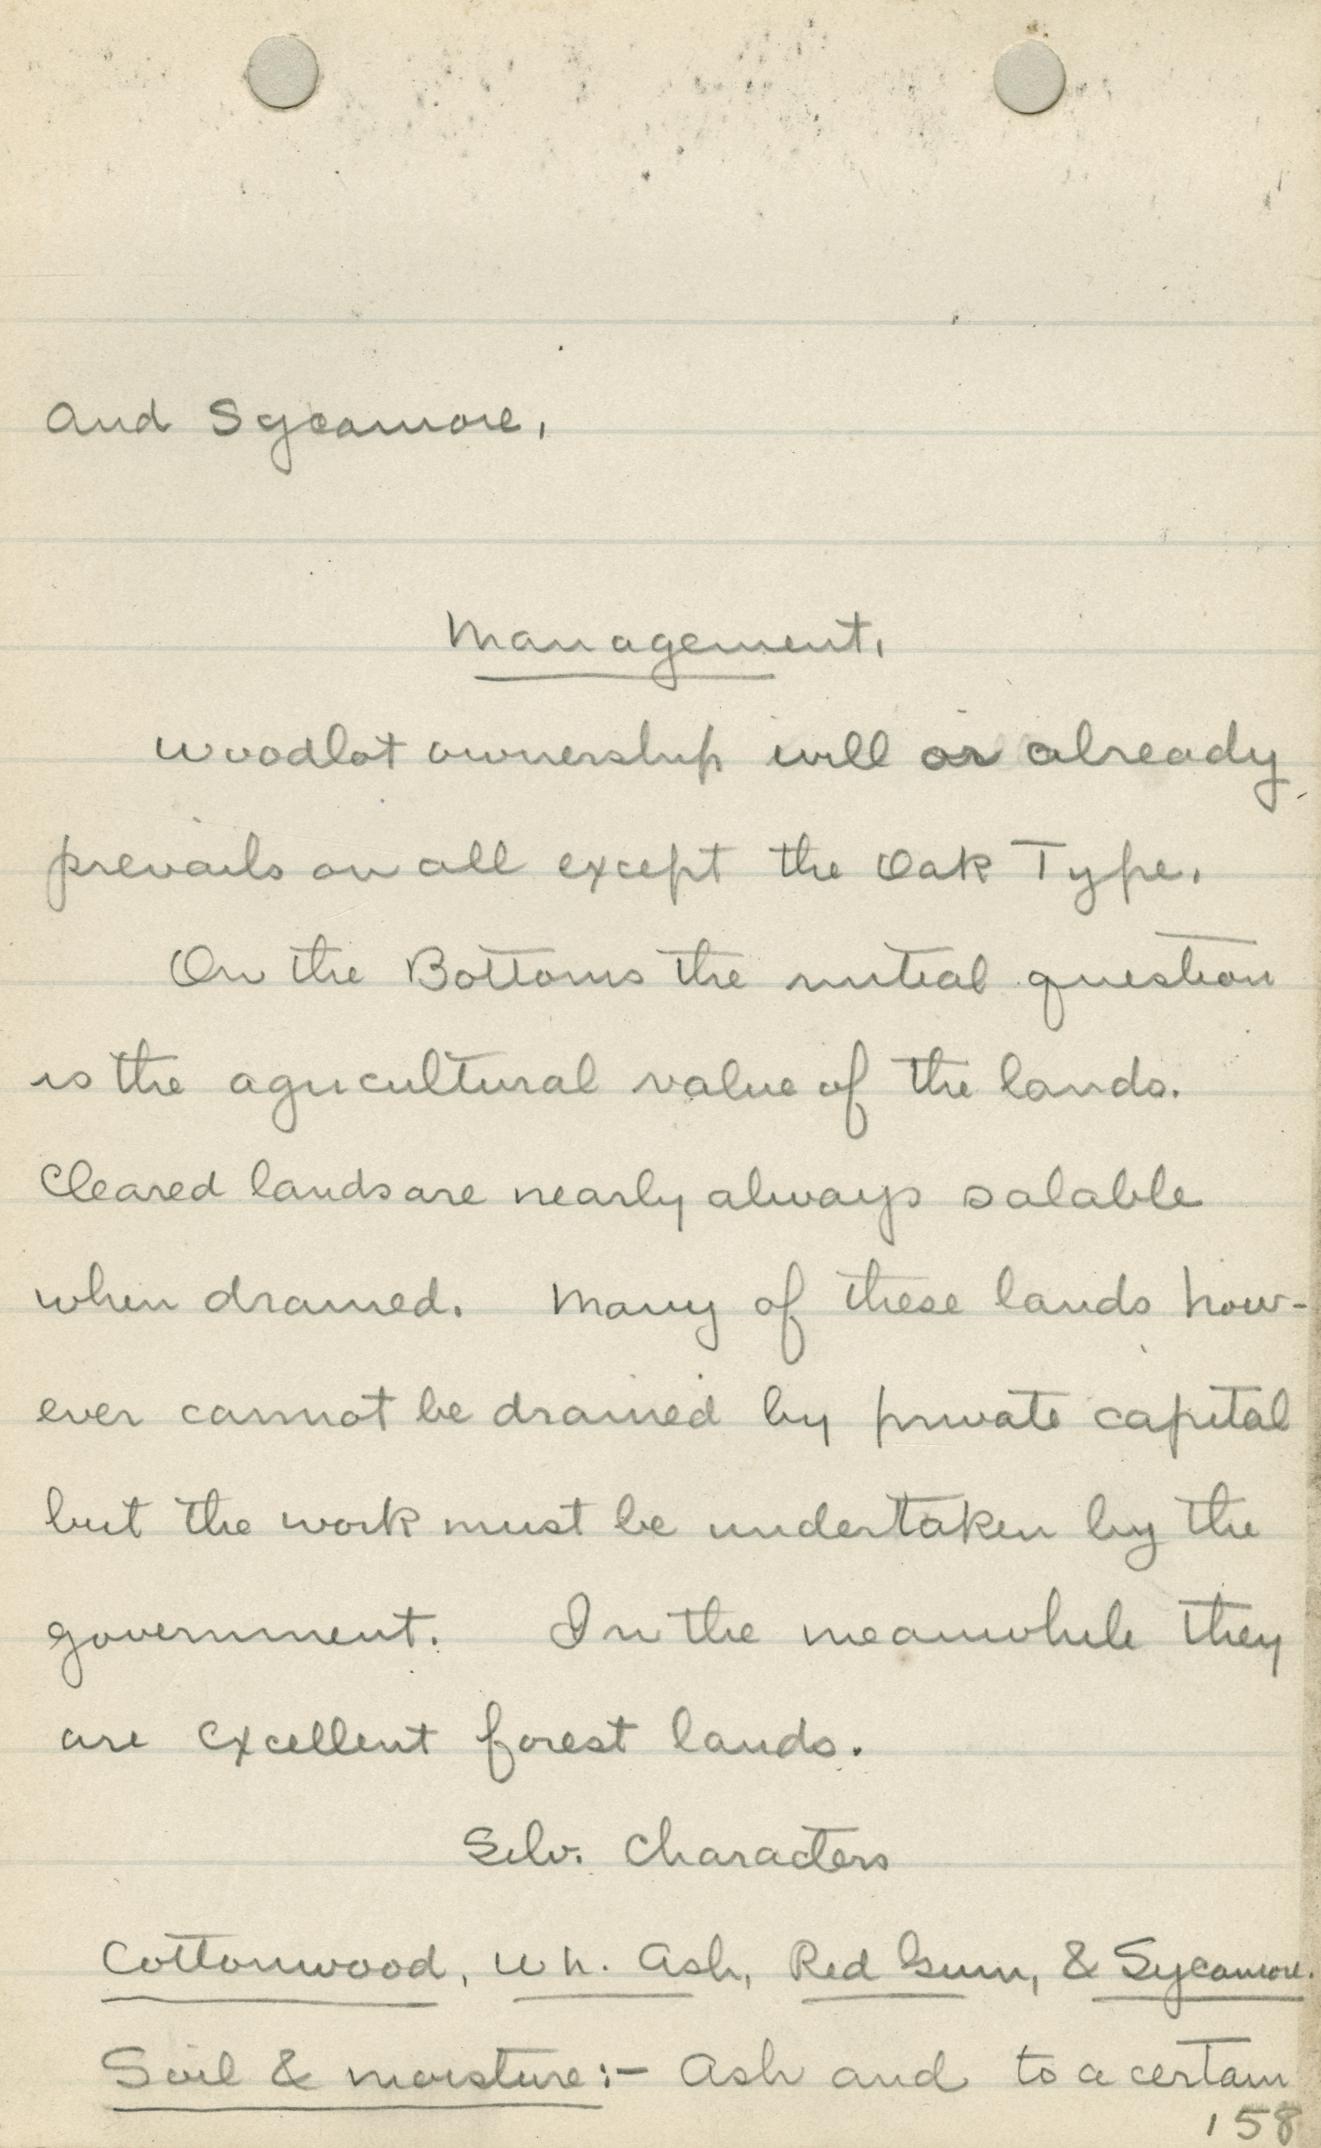 and Sycamore.
Management.
Woodlot ownership will or already
prevails on all except the Oak Type.
On the Bottoms the initial question
is the agricultural value of the lands.
Cleared lands are nearly always salable
when drained. Many of these lands how-
ever cannot be drained by private capital
but the work must be undertaken by the
government. In the meanwhile they
are excellent forest lands.
Silv. Characters
Cottonwood, Wh. Ash, Red Gum, & Sycamore.
Soil & moisture:- Ash and to a certain
158